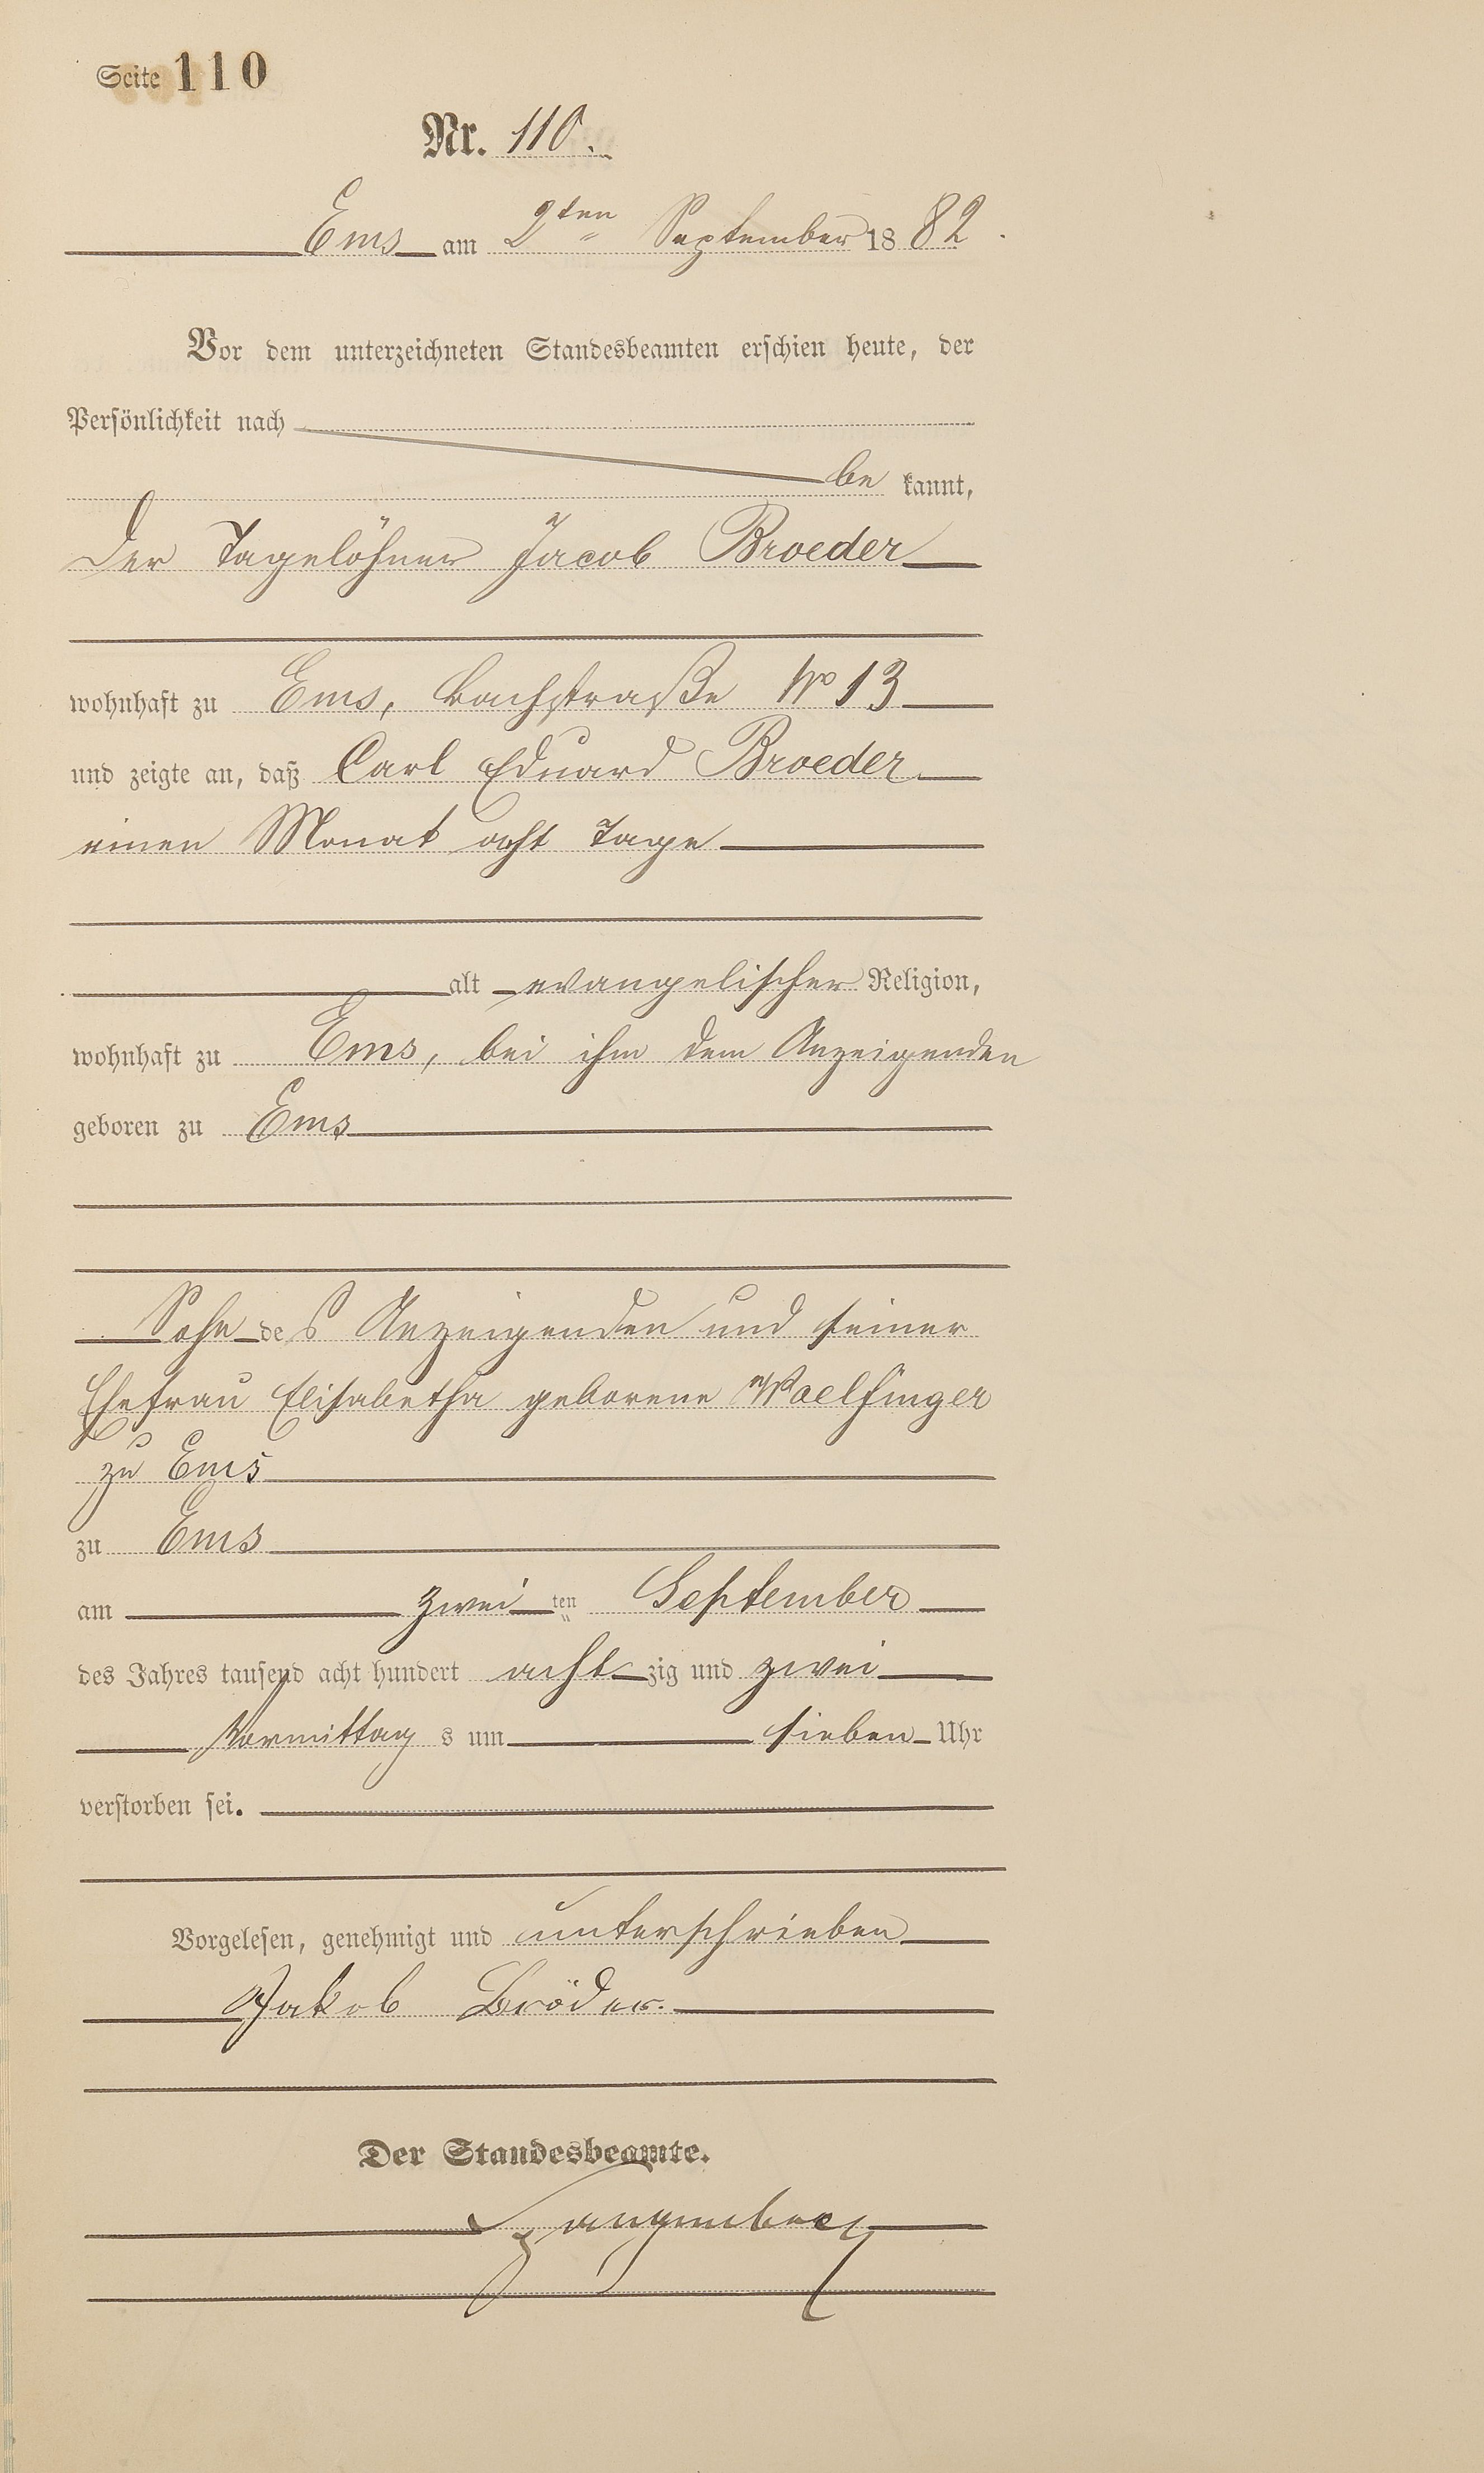 Seite 110
Nr. 110.
Ems am 2ten September 1882.
Vor dem unterzeichneten Standesbeamten erschien heute, der
Persönlichkeit nach
be kannt,
der Tagelöhner Jacob Broeder
wohnhaft zu Ems, Bachstraße No 13
und zeigte an, daß Carl Eduard Broeder
einen Monat acht Tage
alt evangelischer Religion,
wohnhaft zu Ems, bei ihm dem Anzeigenden
geboren zu Ems
Sohn des Anzeigenden und seiner
Ehefrau Elisabetha geborene Woelfinger
zu Ems
zu Ems
am zwei ten September
des Jahres tausend acht hundert acht zig und zwei
Vormittag s um sieben Uhr
verstorben sei.
Vorgelesen, genehmigt und unterschrieben
Jakob Bröder.
Der Standesbeamte.